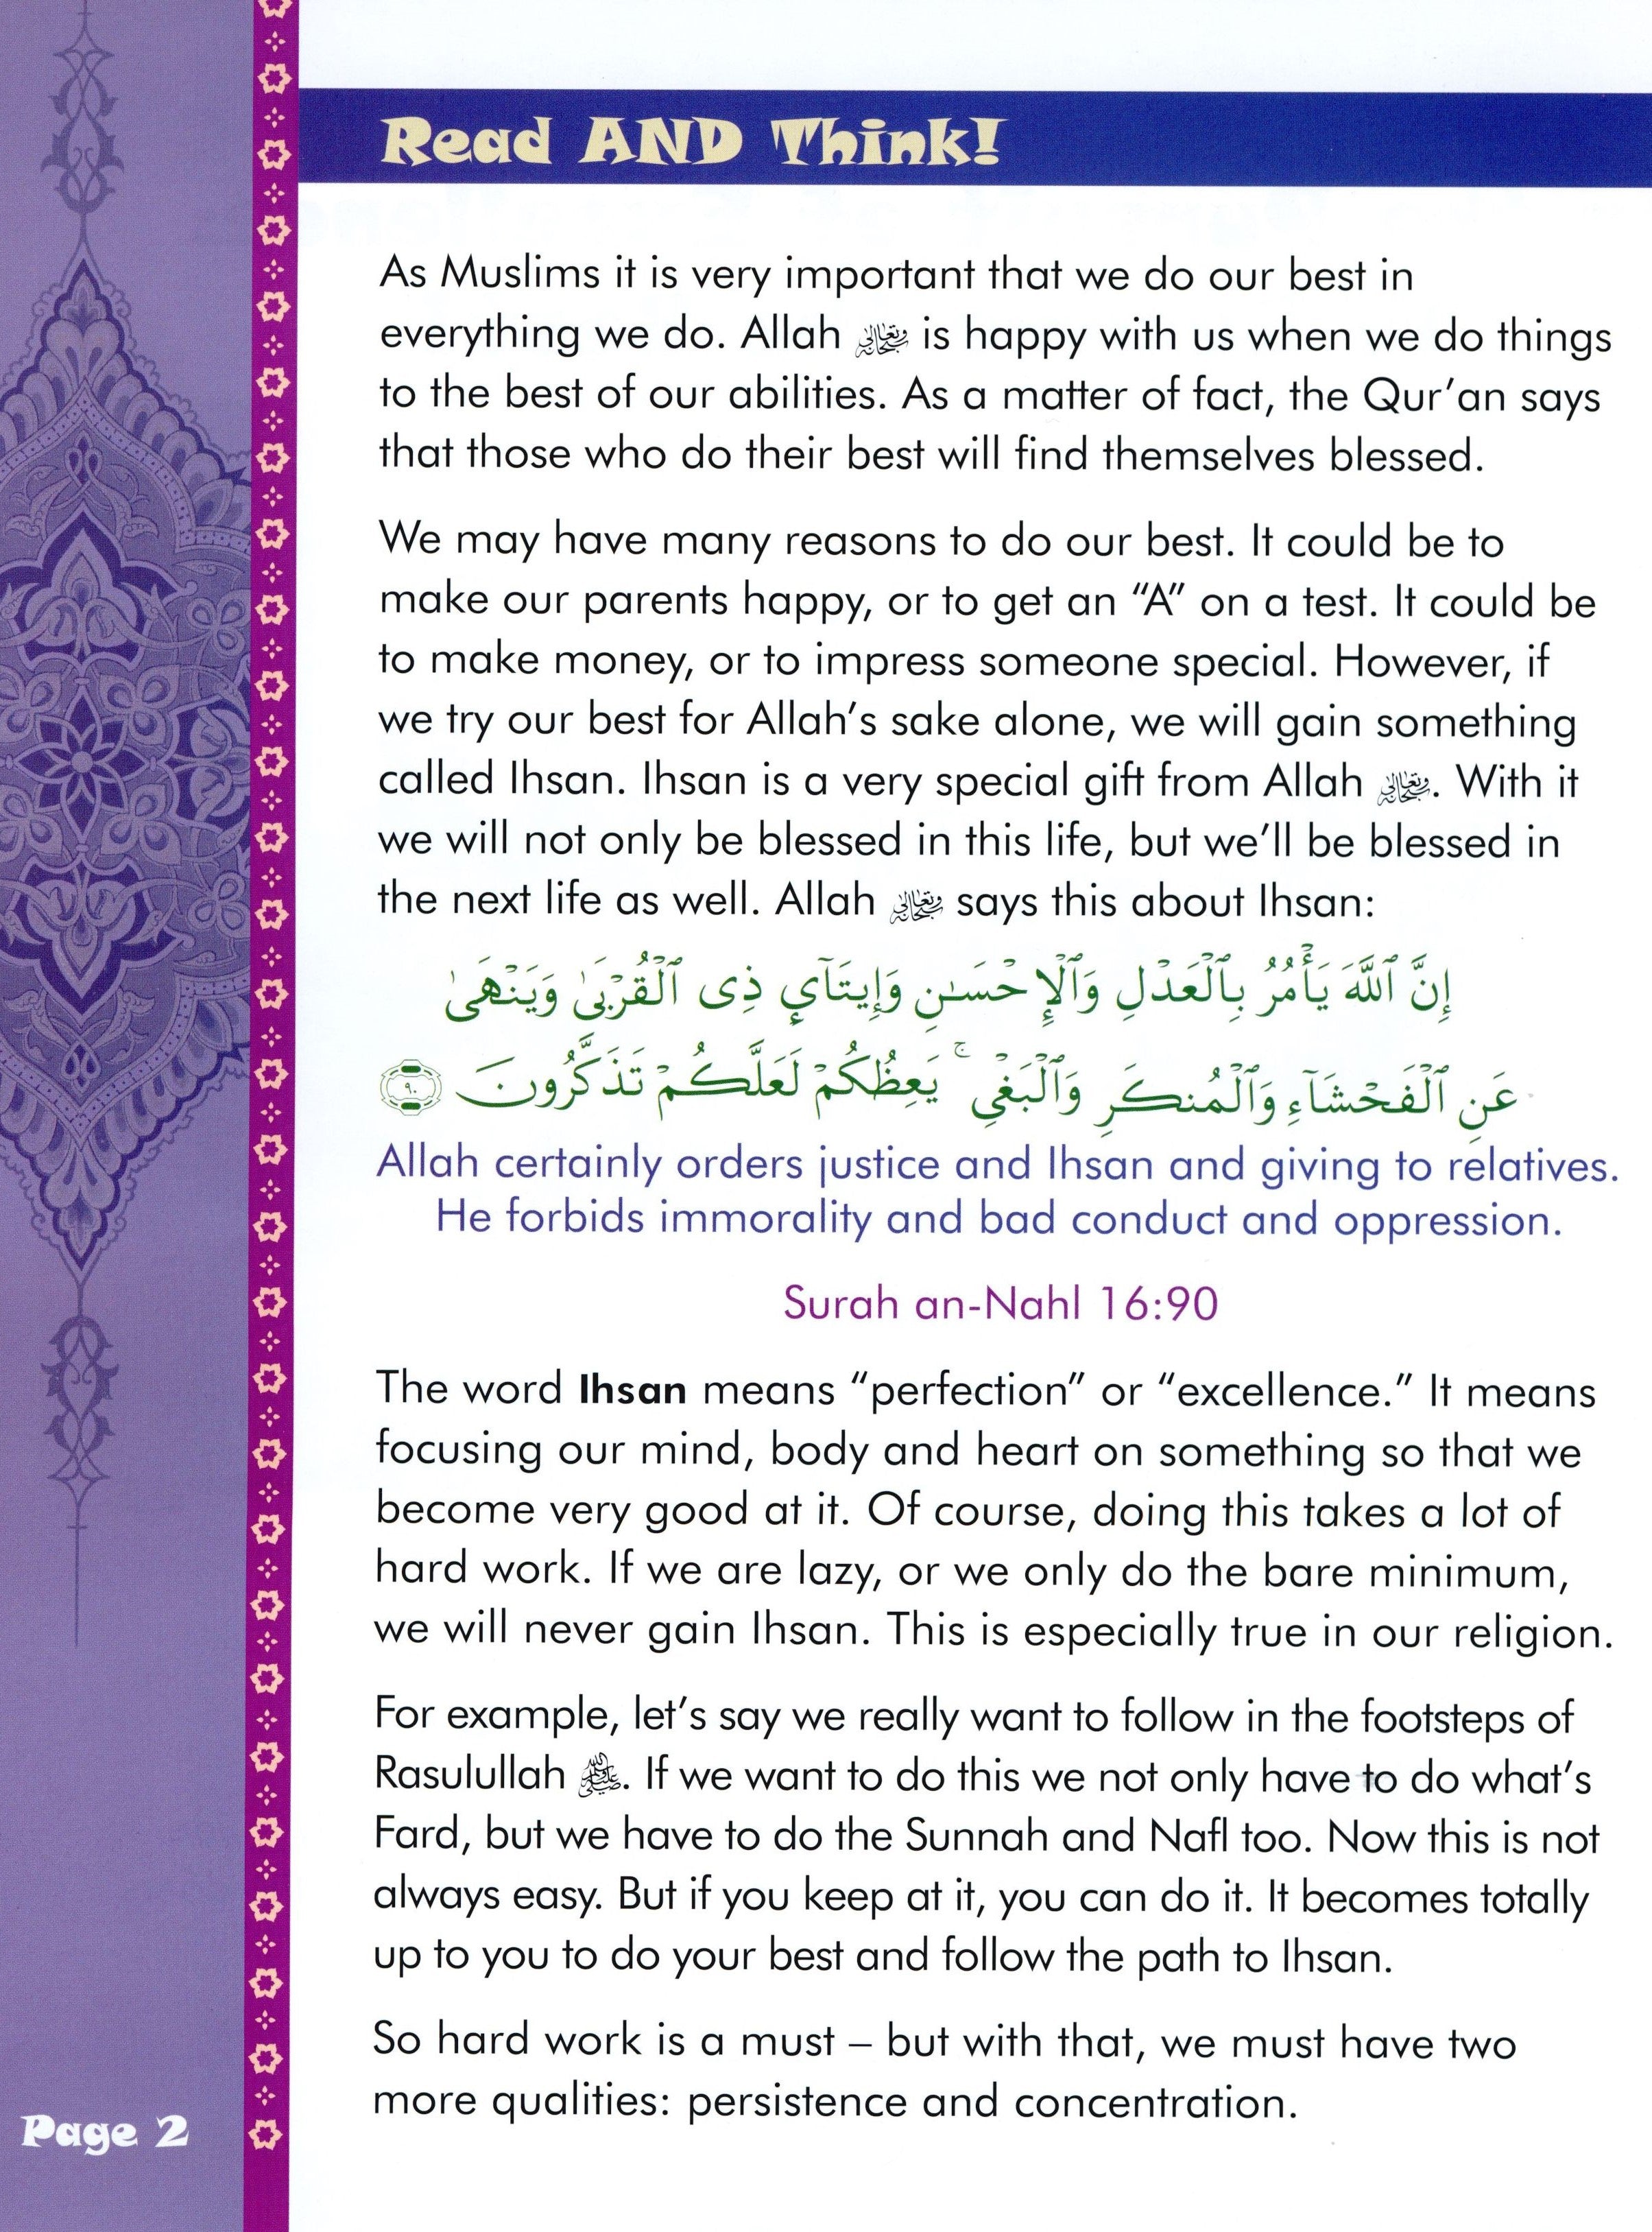 Read AND Think!
As Muslims it is very important that we do our best in
everything we do. Allah سبحانه وتعالى is happy with us when we do things
to the best of our abilities. As a matter of fact, the Qur’an says
that those who do their best will find themselves blessed.
We may have many reasons to do our best. It could be to
make our parents happy, or to get an “A” on a test. It could be
to make money, or to impress someone special. However, if
we try our best for Allah’s sake alone, we will gain something
called Ihsan. Ihsan is a very special gift from Allah سبحانه وتعالى. With it
we will not only be blessed in this life, but we’ll be blessed in
the next life as well. Allah سبحانه وتعالى says this about Ihsan:
إِنَّ ٱللَّهَ يَأْمُرُ بِٱلْعَدْلِ وَٱلْإِحْسَـٰنِ وَإِيتَآئِ ذِى ٱلْقُرْبَىٰ وَيَنْهَىٰ
عَنِ ٱلْفَحْشَآءِ وَٱلْمُنكَرِ وَٱلْبَغْىِ ۚ يَعِظُكُمْ لَعَلَّكُمْ تَذَكَّرُونَ ٩٠
Allah certainly orders justice and Ihsan and giving to relatives.
He forbids immorality and bad conduct and oppression.
Surah an-Nahl 16:90
The word Ihsan means “perfection” or “excellence.” It means
focusing our mind, body and heart on something so that we
become very good at it. Of course, doing this takes a lot of
hard work. If we are lazy, or we only do the bare minimum,
we will never gain Ihsan. This is especially true in our religion.
For example, let’s say we really want to follow in the footsteps of
Rasulullah ﷺ. If we want to do this we not only have to do what’s
Fard, but we have to do the Sunnah and Nafl too. Now this is not
always easy. But if you keep at it, you can do it. It becomes totally
up to you to do your best and follow the path to Ihsan.
So hard work is a must – but with that, we must have two
more qualities: persistence and concentration.
Page 2